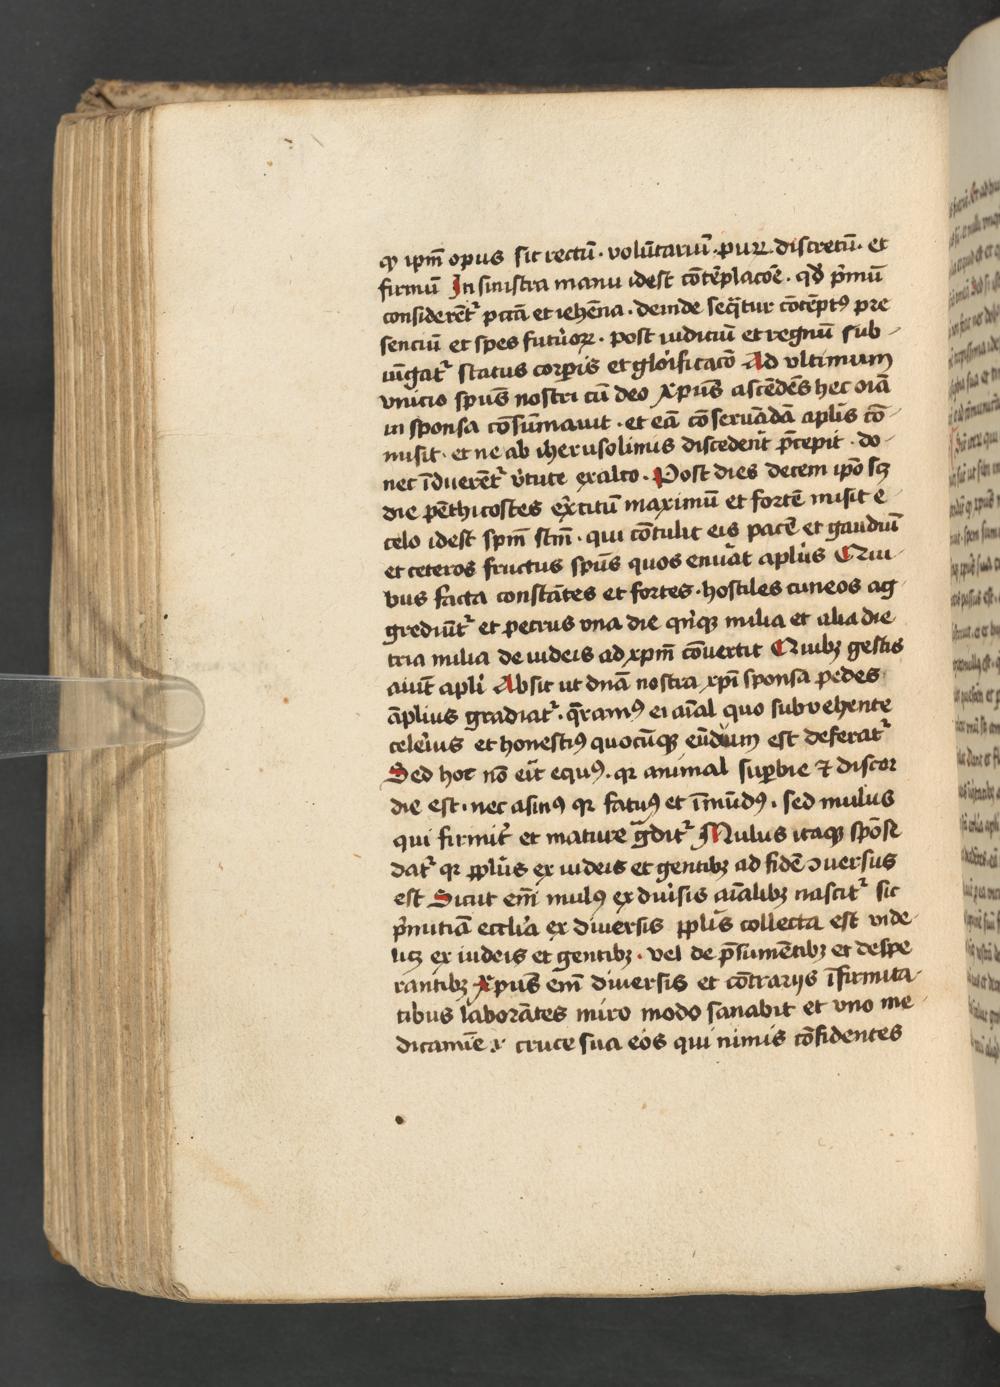 ꝙ ipm̄ opus sit rectū · voluntariū · purꝝ · discretū · et
firmū In sinistra manu idest cōtēplacōe · qđ p̄mū
considerēt᷑ pctā et iehēna · deinde seq̄tur cōtēptꝰ pre
senciū et spes futuꝛoꝝ · post iudiciū et regnū sub-
iūgat᷑ status corꝑis et glorificacō Ad vltimum
vnicio spūs nostri cū deo Xpūs ascēdēs hec oīa
in sponsa cōsūmauit · et eā cōseruādā aplīs cō-
misit · et ne ab iherusolimis discederēt p̄cepit · do-
nec īduerēt᷑ v̓tute ex alto · Post dies decem ip̄o scꝫ
die pēthicostes ex̓citū maximū et fortē misit e
celo idest spm̄ stm̄ · qui cōtulit eis pacē et gaudiū
et ceteros fructus spūs quos enūat aplūs Quī-
bus facta constātes et fortes · hostiles cuneos ag-
grediūt᷑ et petrus vna die qn̄qꝫ milia et alia die
tria milia de iudeis ad xpm̄ cōuertit Quibꝫ gestis
aiūt apl̓i Absit ut dnā nostra xpī sponsa pedes
āplius gradiat᷑ · q̄ramꝰ ei aīal quo subvehente
celeꝛius et honestiꝰ quocūqꝫ eūdum est deferat᷑
Sed hoc nō eīt equꝰ · qꝛ animal suꝑbie ⁊ discor
die est · nec asinꝰ qꝛ fatuꝰ et īmūdꝰ · sed mulus
qui firmit̓ et mature g̃dit᷑ Mulus itaqꝫ spōse
dat᷑ qꝛ ppl̓us ex iudeis et gentibꝫ ad fidē ꝯuersus
est Sicut em̄ mulꝰ ex diu̓sis aīalibꝫ nascit᷑ sic
p̄mitiā eccl̓ia ex diuersis ppl̓is collecta est vide
licꝫ ex iudeis et gentibꝫ · vel de p̄sumētibꝫ et despe
rantibꝫ Xpūs em̄ diuersis et cōtrarijs īfirmita-
tibus laborātes miro modo sanabit et vno me-
dicamīe ẋ cruce sua eos qui nimis cōfidentes